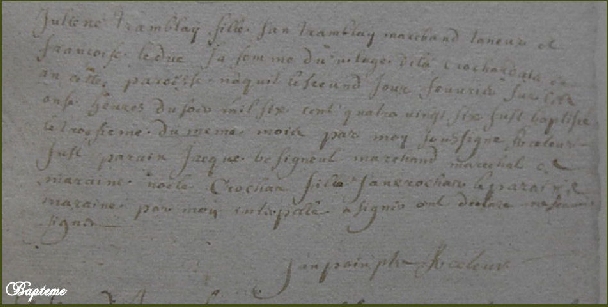 Juliene Tramblay fille Jan tramblay marchand taneur et
francoise leduc sa femme du vilage de la Crochardais en
en cette paroisse naquit le second jour feuvrier sur les
onse heures du soir mil six cent quatre vingt six fust baptisee
le troisieme du meme mois par moy soussigne Recteur
fust parain Jacque besigneul marchand marechal et
maraine fille Jan le parain et
maraine par moy interpele a signer ont declare ne
signer
Jan Recteur
Bapteme